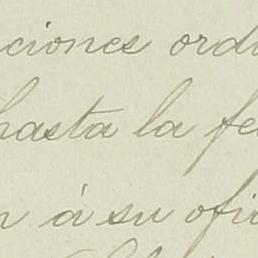 ciones ord
hasta la fe
n á su ofi